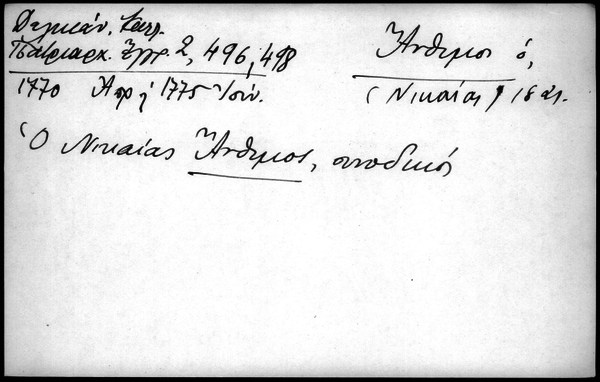 Δελικάν, Καλλ.
Πατριαρχ. Ἔγγρ. 2, 496, 498
1770 Ἀπρ ή 1775 Ἰούν.
Ἄνθιμος ὁ,
(Νικαίας) 18 αἰ.
Ὁ Νικαίας Ἄνθιμος, συνοδικός